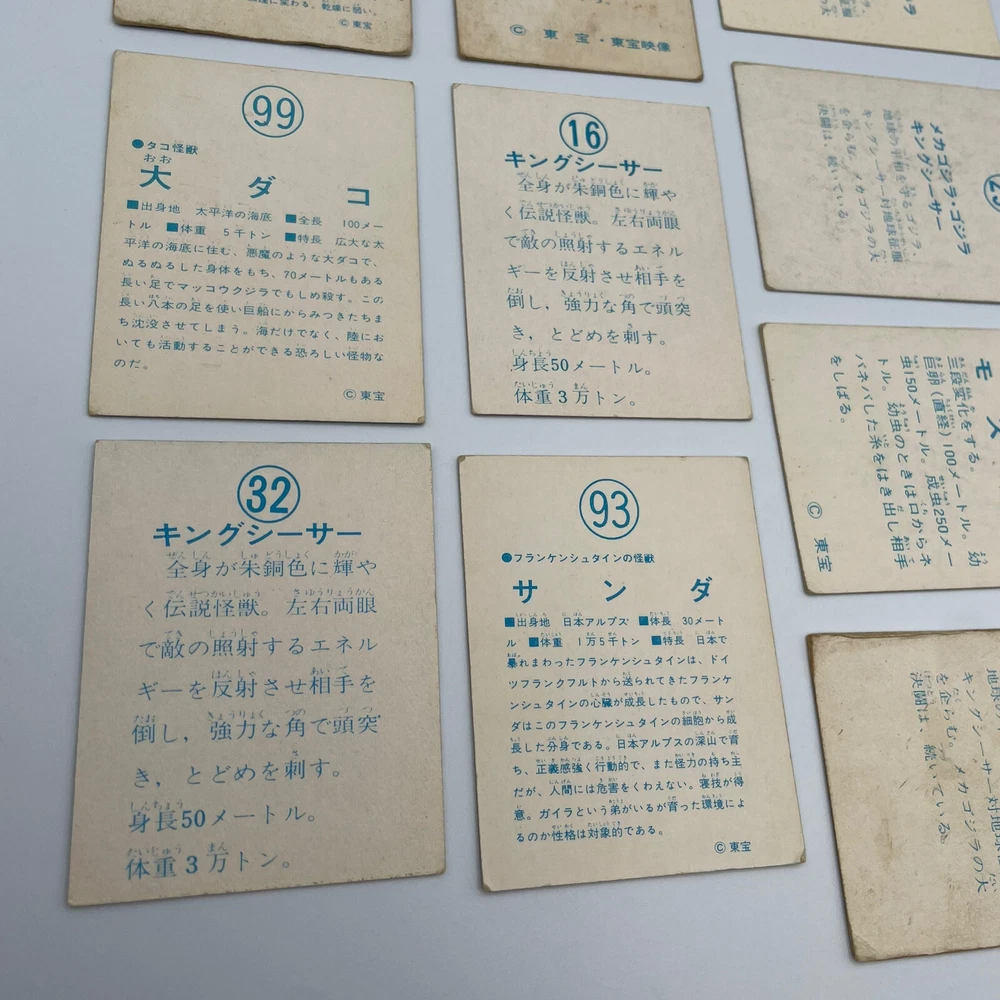 に変わる。乾燥に弱い。
© 東宝
© 東宝・東宝映像
99
●タコ怪獣
おお
大ダコ
■出身地 太平洋の海底 ■全長 100メー
トル ■体重 5千トン ■特長 広大な太
平洋の海底に住む、悪魔のような大ダコで、
ぬるぬるした身体をもち、70メートルもある
長い足でマッコウクジラでもしめ殺す。この
長い八本の足を使い巨船にからみつきたちま
ち沈没させてしまう。海だけでなく、陸にお
いても活動することができる恐ろしい怪物な
のだ。
© 東宝
16
キングシーサー
ぜんしん しゅどうしょく かがや
全身が朱銅色に輝や
でんせつかいじゅう さゆうりょうがん
く伝説怪獣。左右両眼
で敵の照射するエネル
はんしゃ あいて
ギーを反射させ相手を
たお きょうりょく つの ずつ
倒し，強力な角で頭突
さ
き，とどめを刺す。
しんちょう
身長50メートル。
たいじゅう まん
体重3万トン。
メカゴジラ・ゴジラ
キングシーサー
地球の平和を守るゴジラ、
キングシーサー対地球征服
を企らむ。メカゴジラの大
決闘は、続いている。
モス
三段変化をする。幼
巨卵（直経）100メートル。幼
虫150メートル。成虫250メー
トル。幼虫のときは口からネ
バネバした糸をはき出し相手
をしばる。
© 東宝
32
キングシーサー
ぜんしん しゅどうしょく かが
全身が朱銅色に輝や
でんせつかいじゅう さゆうりょうがん
く伝説怪獣。左右両眼
てき しょうしゃ
で敵の照射するエネル
はんしゃ あいて
ギーを反射させ相手を
たお きょうりょく つの ずつ
倒し，強力な角で頭突
さ
き，とどめを刺す。
しんちょう
身長50メートル。
たいじゅう まん
体重3万トン。
93
●フランケンシュタインの怪獣
サンダ
■出身地 日本アルプス ■体長 30メート
ル ■体重 1万5千トン ■特長 日本で
暴れまわったフランケンシュタインは、ドイ
ツフランクフルトから送られてきたフランケ
ンシュタインの心臓が成長したもので、サン
ダはこのフランケンシュタインの細胞から成
長した分身である。日本アルプスの深山で育
ち、正義感強く行動的で、また怪力の持ち主
だが、人間には危害をくわえない。寝技が得
意。ガイラという弟がいるが育った環境によ
るのか性格は対象的である。
© 東宝
キングシーサー対地球
を企らむ。メカゴジラの大
決闘は、続いている。